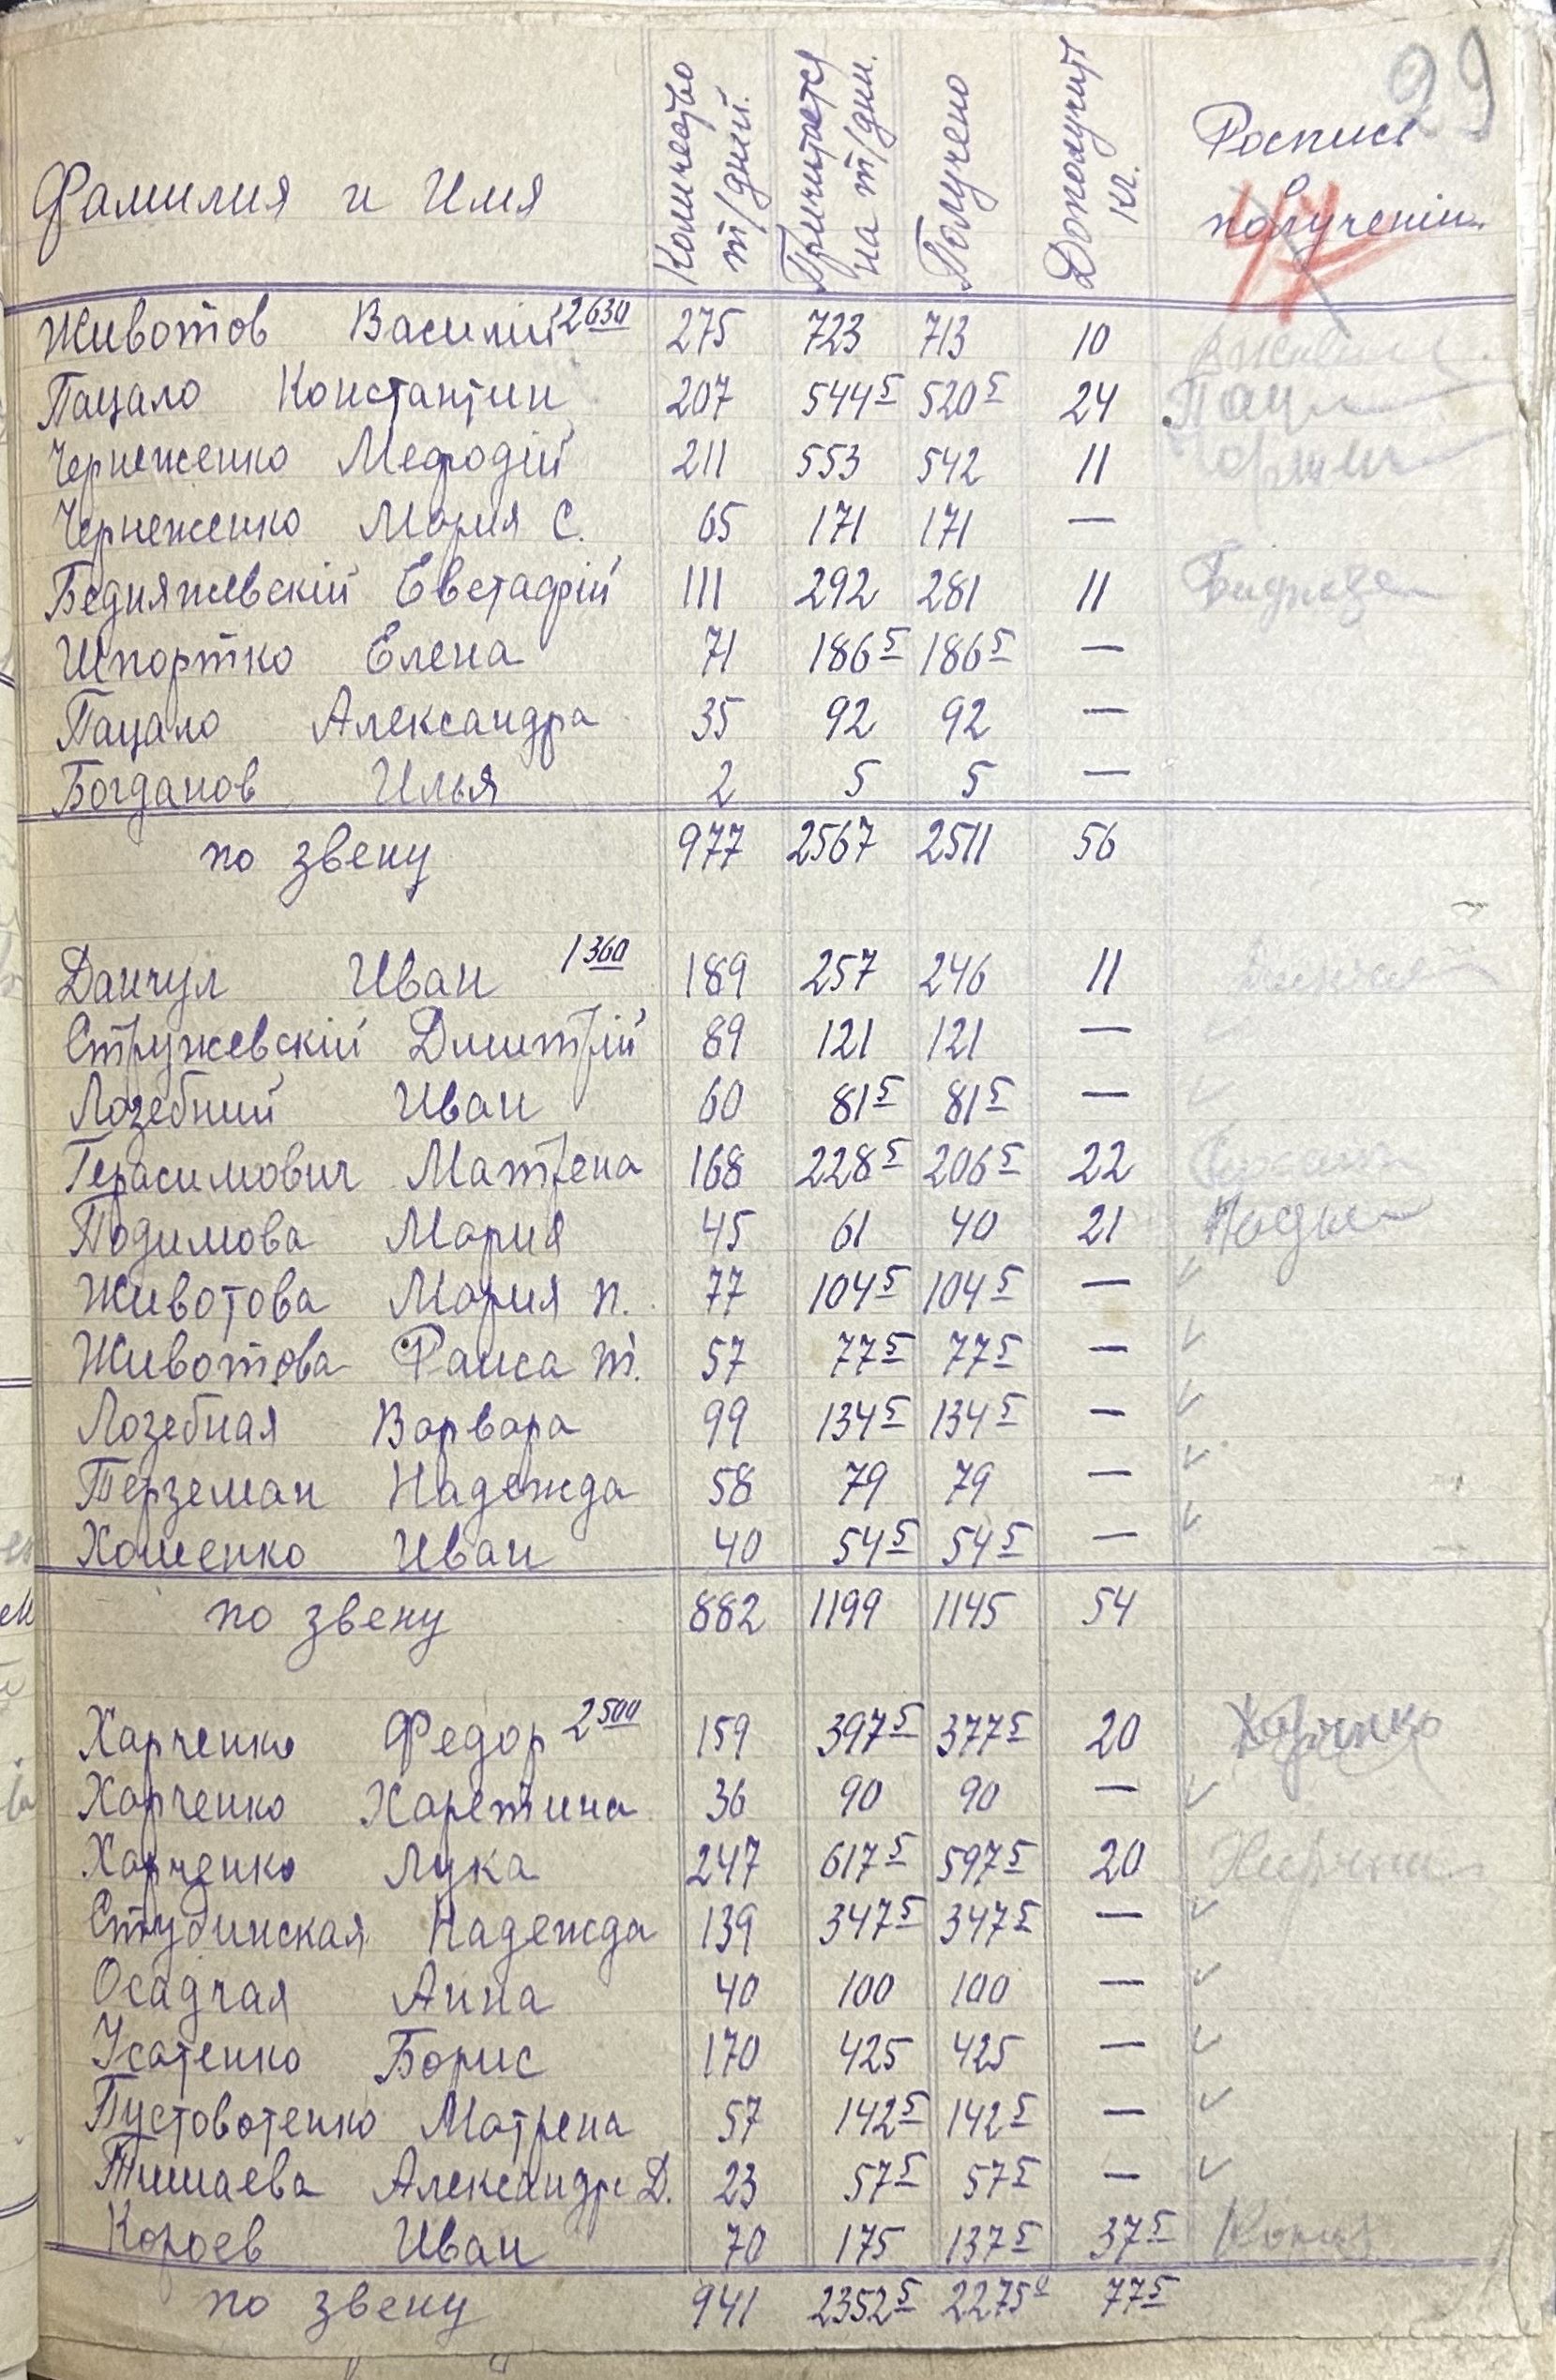 29
Фамилия и Имя Количество т/дней. Причитается на т/дни. Получено Дополучит кг. Роспись
получении
Животов Василий 2630 275 723 713 10
Пацало Константин 207 544 5 520 5 24 Пац
Чернеженко Мефодій 211 553 542 11
Чернеженко Мария С. 65 171 171 —
Бедняжевскій Евстафій 111 292 281 11
Шпортко Елена 71 186 5 186 5 —
Пацало Александра 35 92 92 —
Богданов Илья 2 5 5 —
по звену 977 2567 2511 56
Данчул Иван 1360 189 257 246 11
Стружевскій Дмитрій 89 121 121 —
Лозебний Иван 60 81 5 81 5 —
Герасимович Матрена 168 228 5 206 5 22
Подимова Мария 45 61 40 21
Животова Мария п. 77 104 5 104 5 —
Животова Раиса т. 57 77 5 77 5 —
Лозебная Варвара 99 134 5 134 5 —
Терземан Надежда 58 79 79 —
Хоменко Иван 40 54 5 54 5 —
по звену 882 1199 1145 54
Харченко Федор 2500 159 397 5 377 5 20 Харченко
Харченко Харетина 36 90 90 —
Харченко Лука 247 617 5 597 5 20
Студинская Надежда 139 347 5 347 5 —
Осадчая Анна 40 100 100 —
Усатенко Борис 170 425 425 —
Пустовотенко Матрена 57 142 5 142 5 —
Тишаева Александр Д. 23 57 5 57 5 —
Короев Иван 70 175 137 5 37 5
по звену 941 2352 5 2275 0 77 5